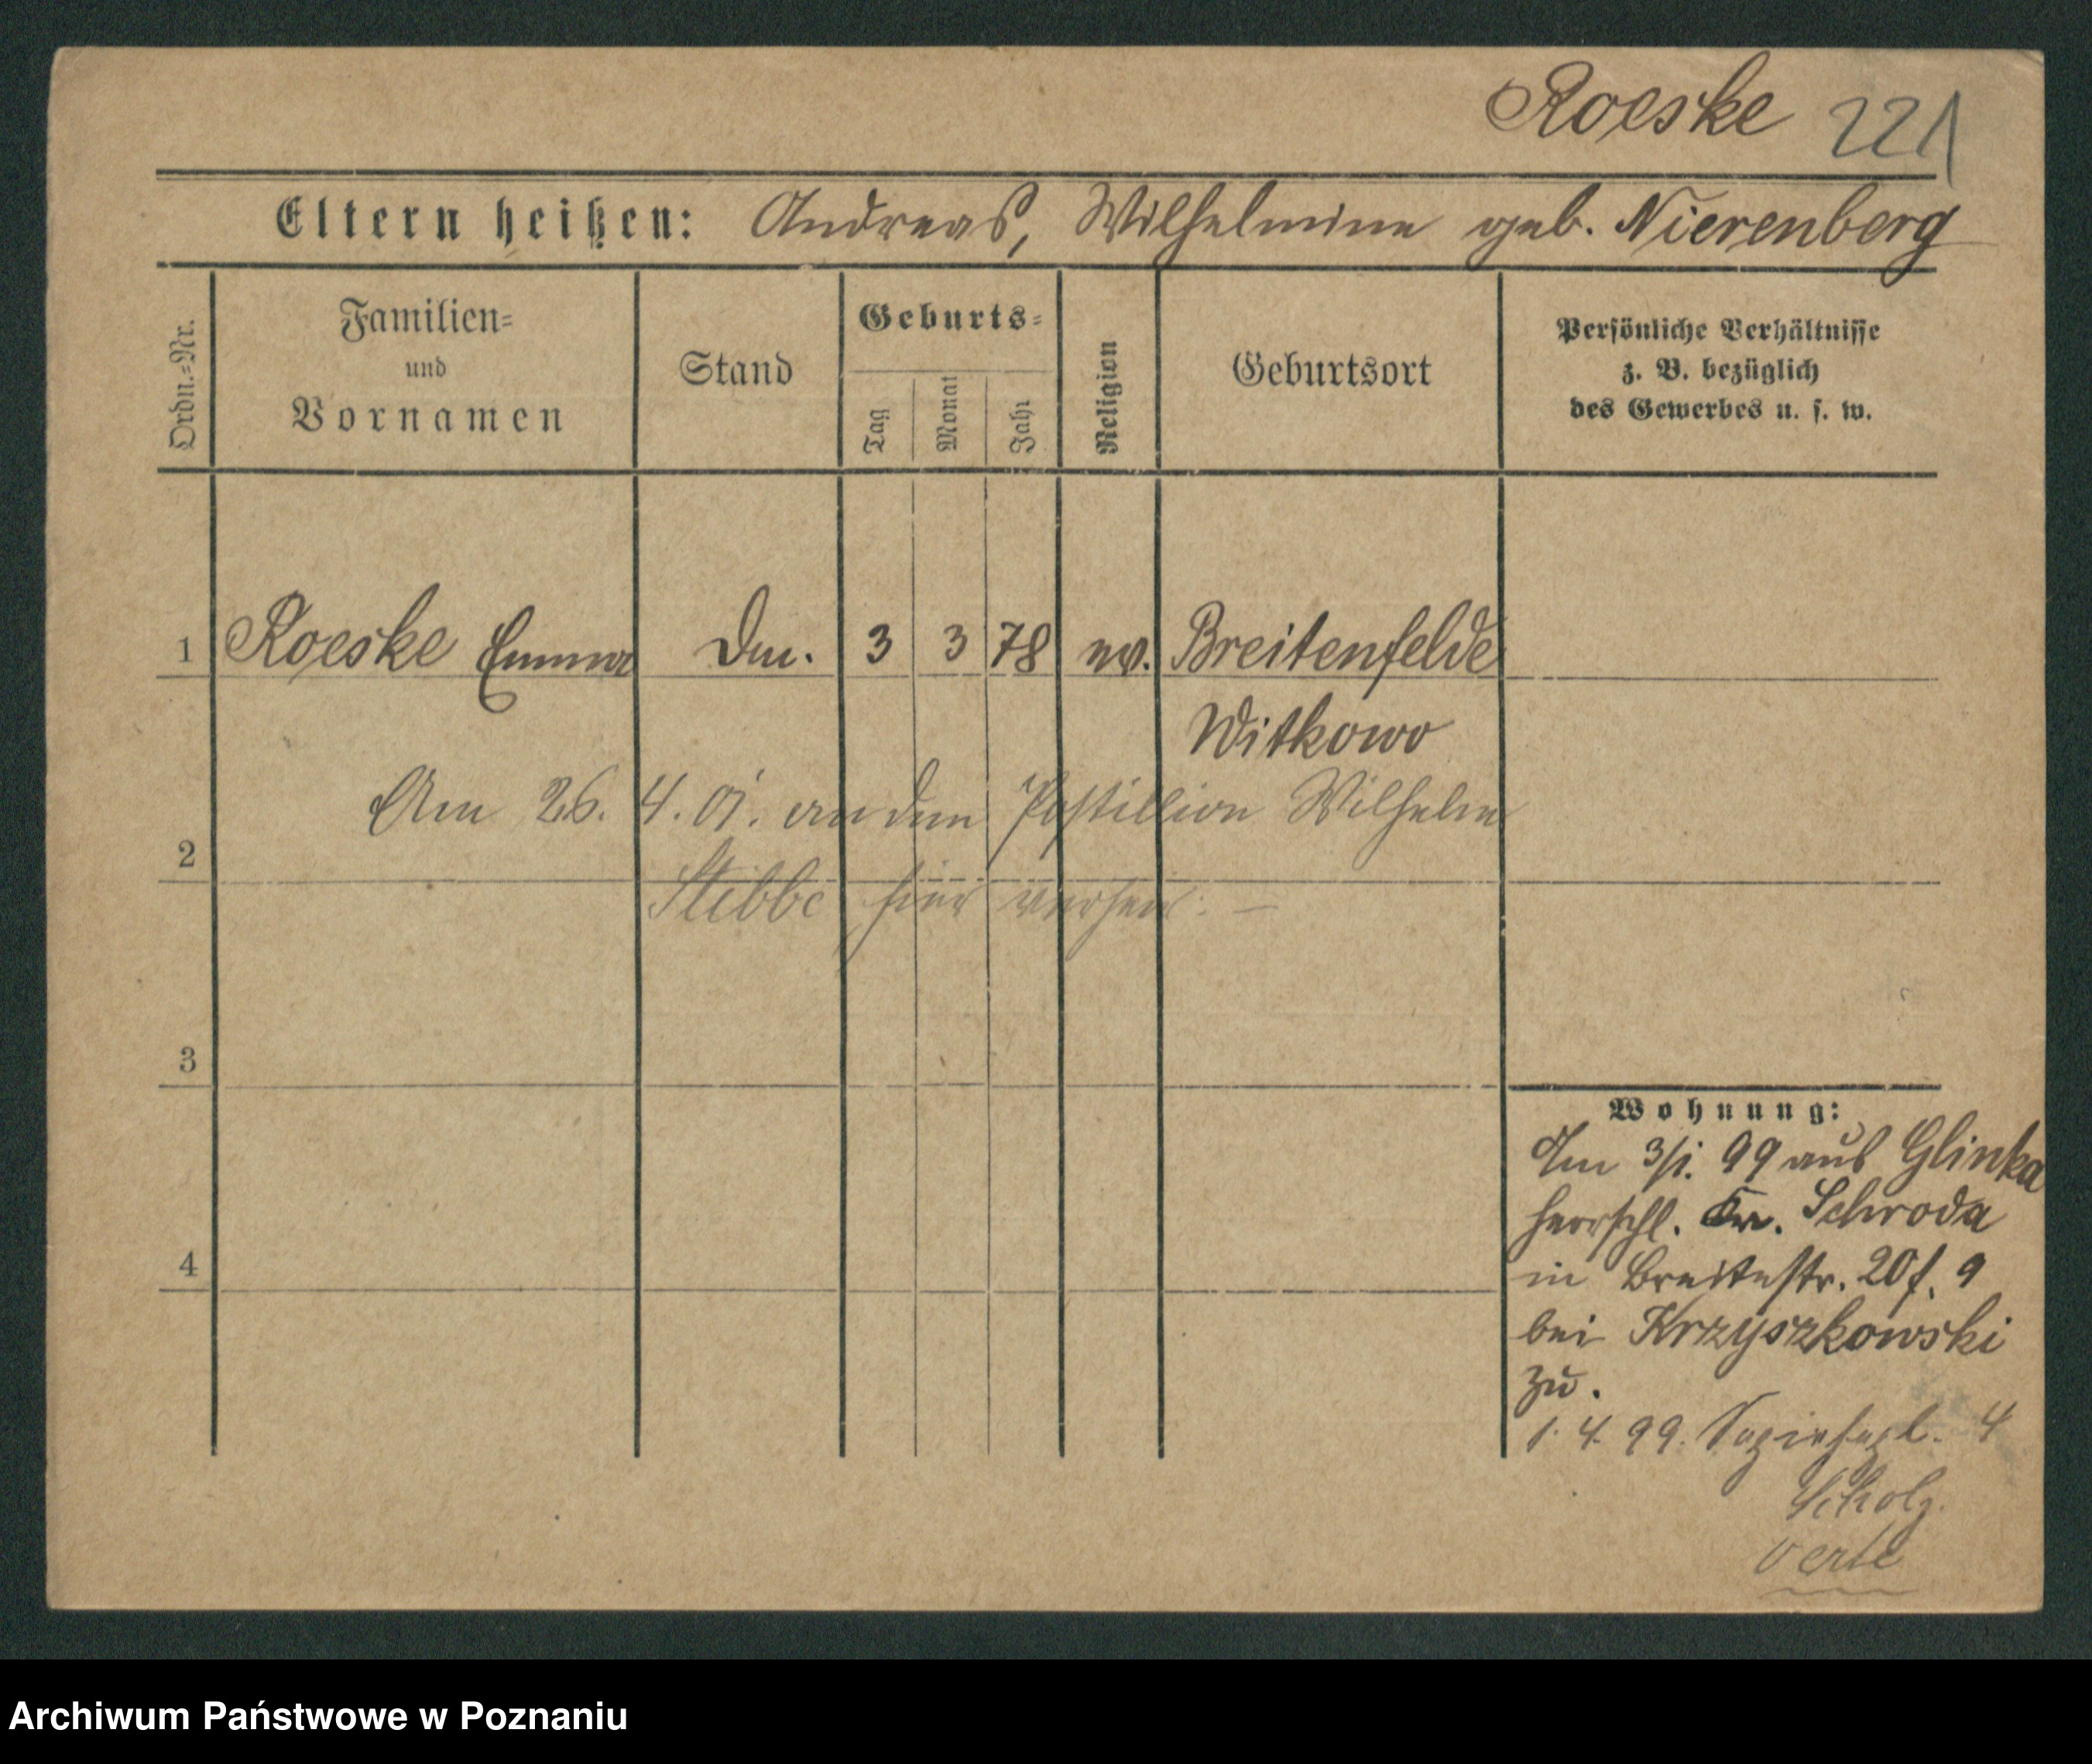 Roeske 221
Eltern heißen: Andreas, Wilhelmine geb. Nierenberg
Ordn.=Nr.
Familien=
und
Vornamen
Stand
Geburts=
Tag
Monat
Jahr
Religion
Geburtsort
Persönliche Verhältnisse
z. B. bezüglich
des Gewerbes u. s. w.
1 Roeske Emma 3 3 78 ev. Breitenfelde
Witkowo
Am 26. 4. 01. an den Postillion Wilhelm
2
Stibbe hier verheir. —
3
4
Wohnung:
Am 3/1. 99 aus Glinka
herrschl. Kr. Schroda
in Breitestr. 20 f. 9
bei Krzyszkowski
zu.
1. 4. 99. Sapiehapl. 4
Scholz.
verte
Archiwum Państwowe w Poznaniu